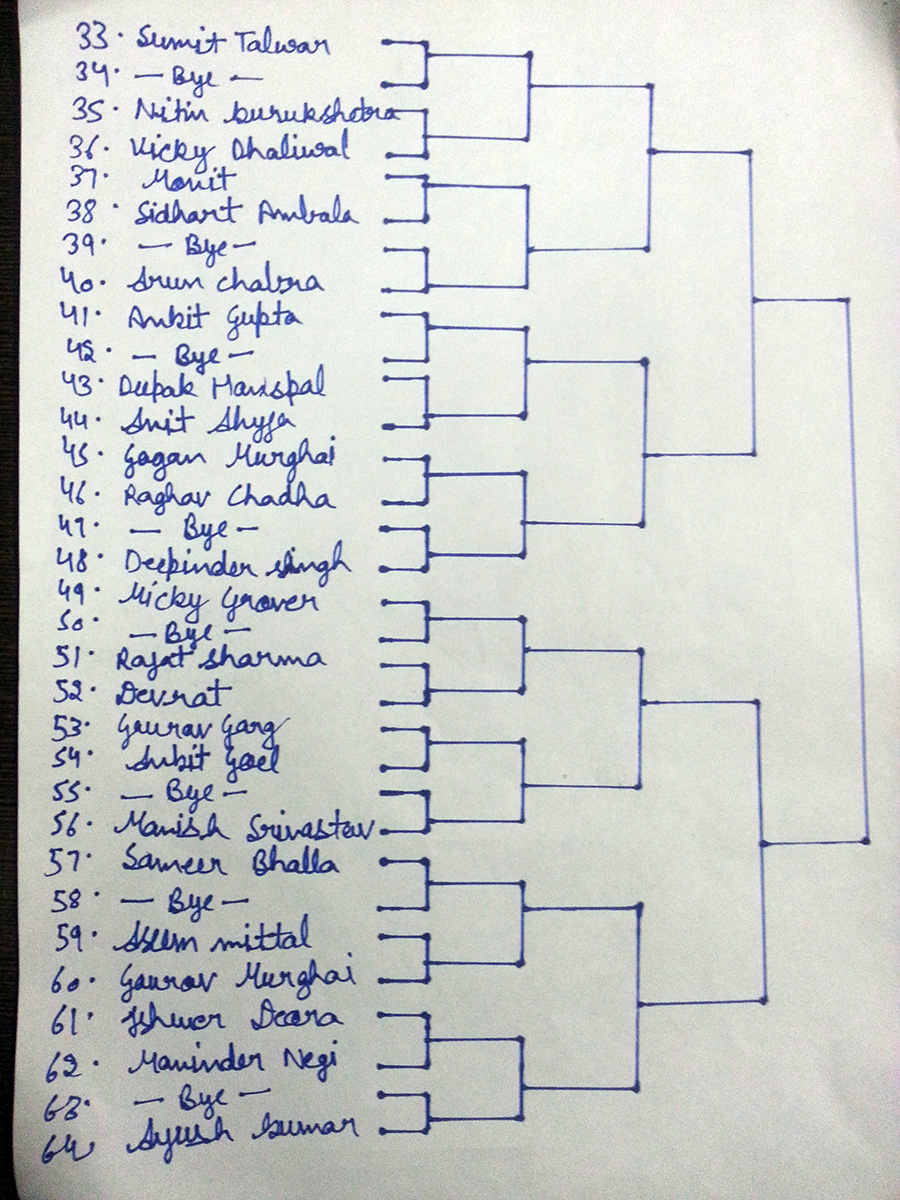 33. Sumit Talwar
34. — Bye —
35. Nitin kurukshetra
36. Vicky Dhaliwal
37. Monit
38. Sidhart Ambala
39. — Bye —
40. Arun chabra
41. Ankit Gupta
42. — Bye —
43. Deepak
44. Amit
45. Gagan Murghai
46. Raghav Chadha
47. — Bye —
48. Deepinder singh
49. Micky Grover
50. — Bye —
51. Rajat sharma
52. Devrat
53. Gaurav Garg
54. Ankit Goel
55. — Bye —
56. Manish Srivastav
57. Sameer Bhalla
58. — Bye —
59. Aseem mittal
60. Gaurav Murghai
61. Ishwer Deora
62. Maninder Negi
63. — Bye —
64. Ayush kumar